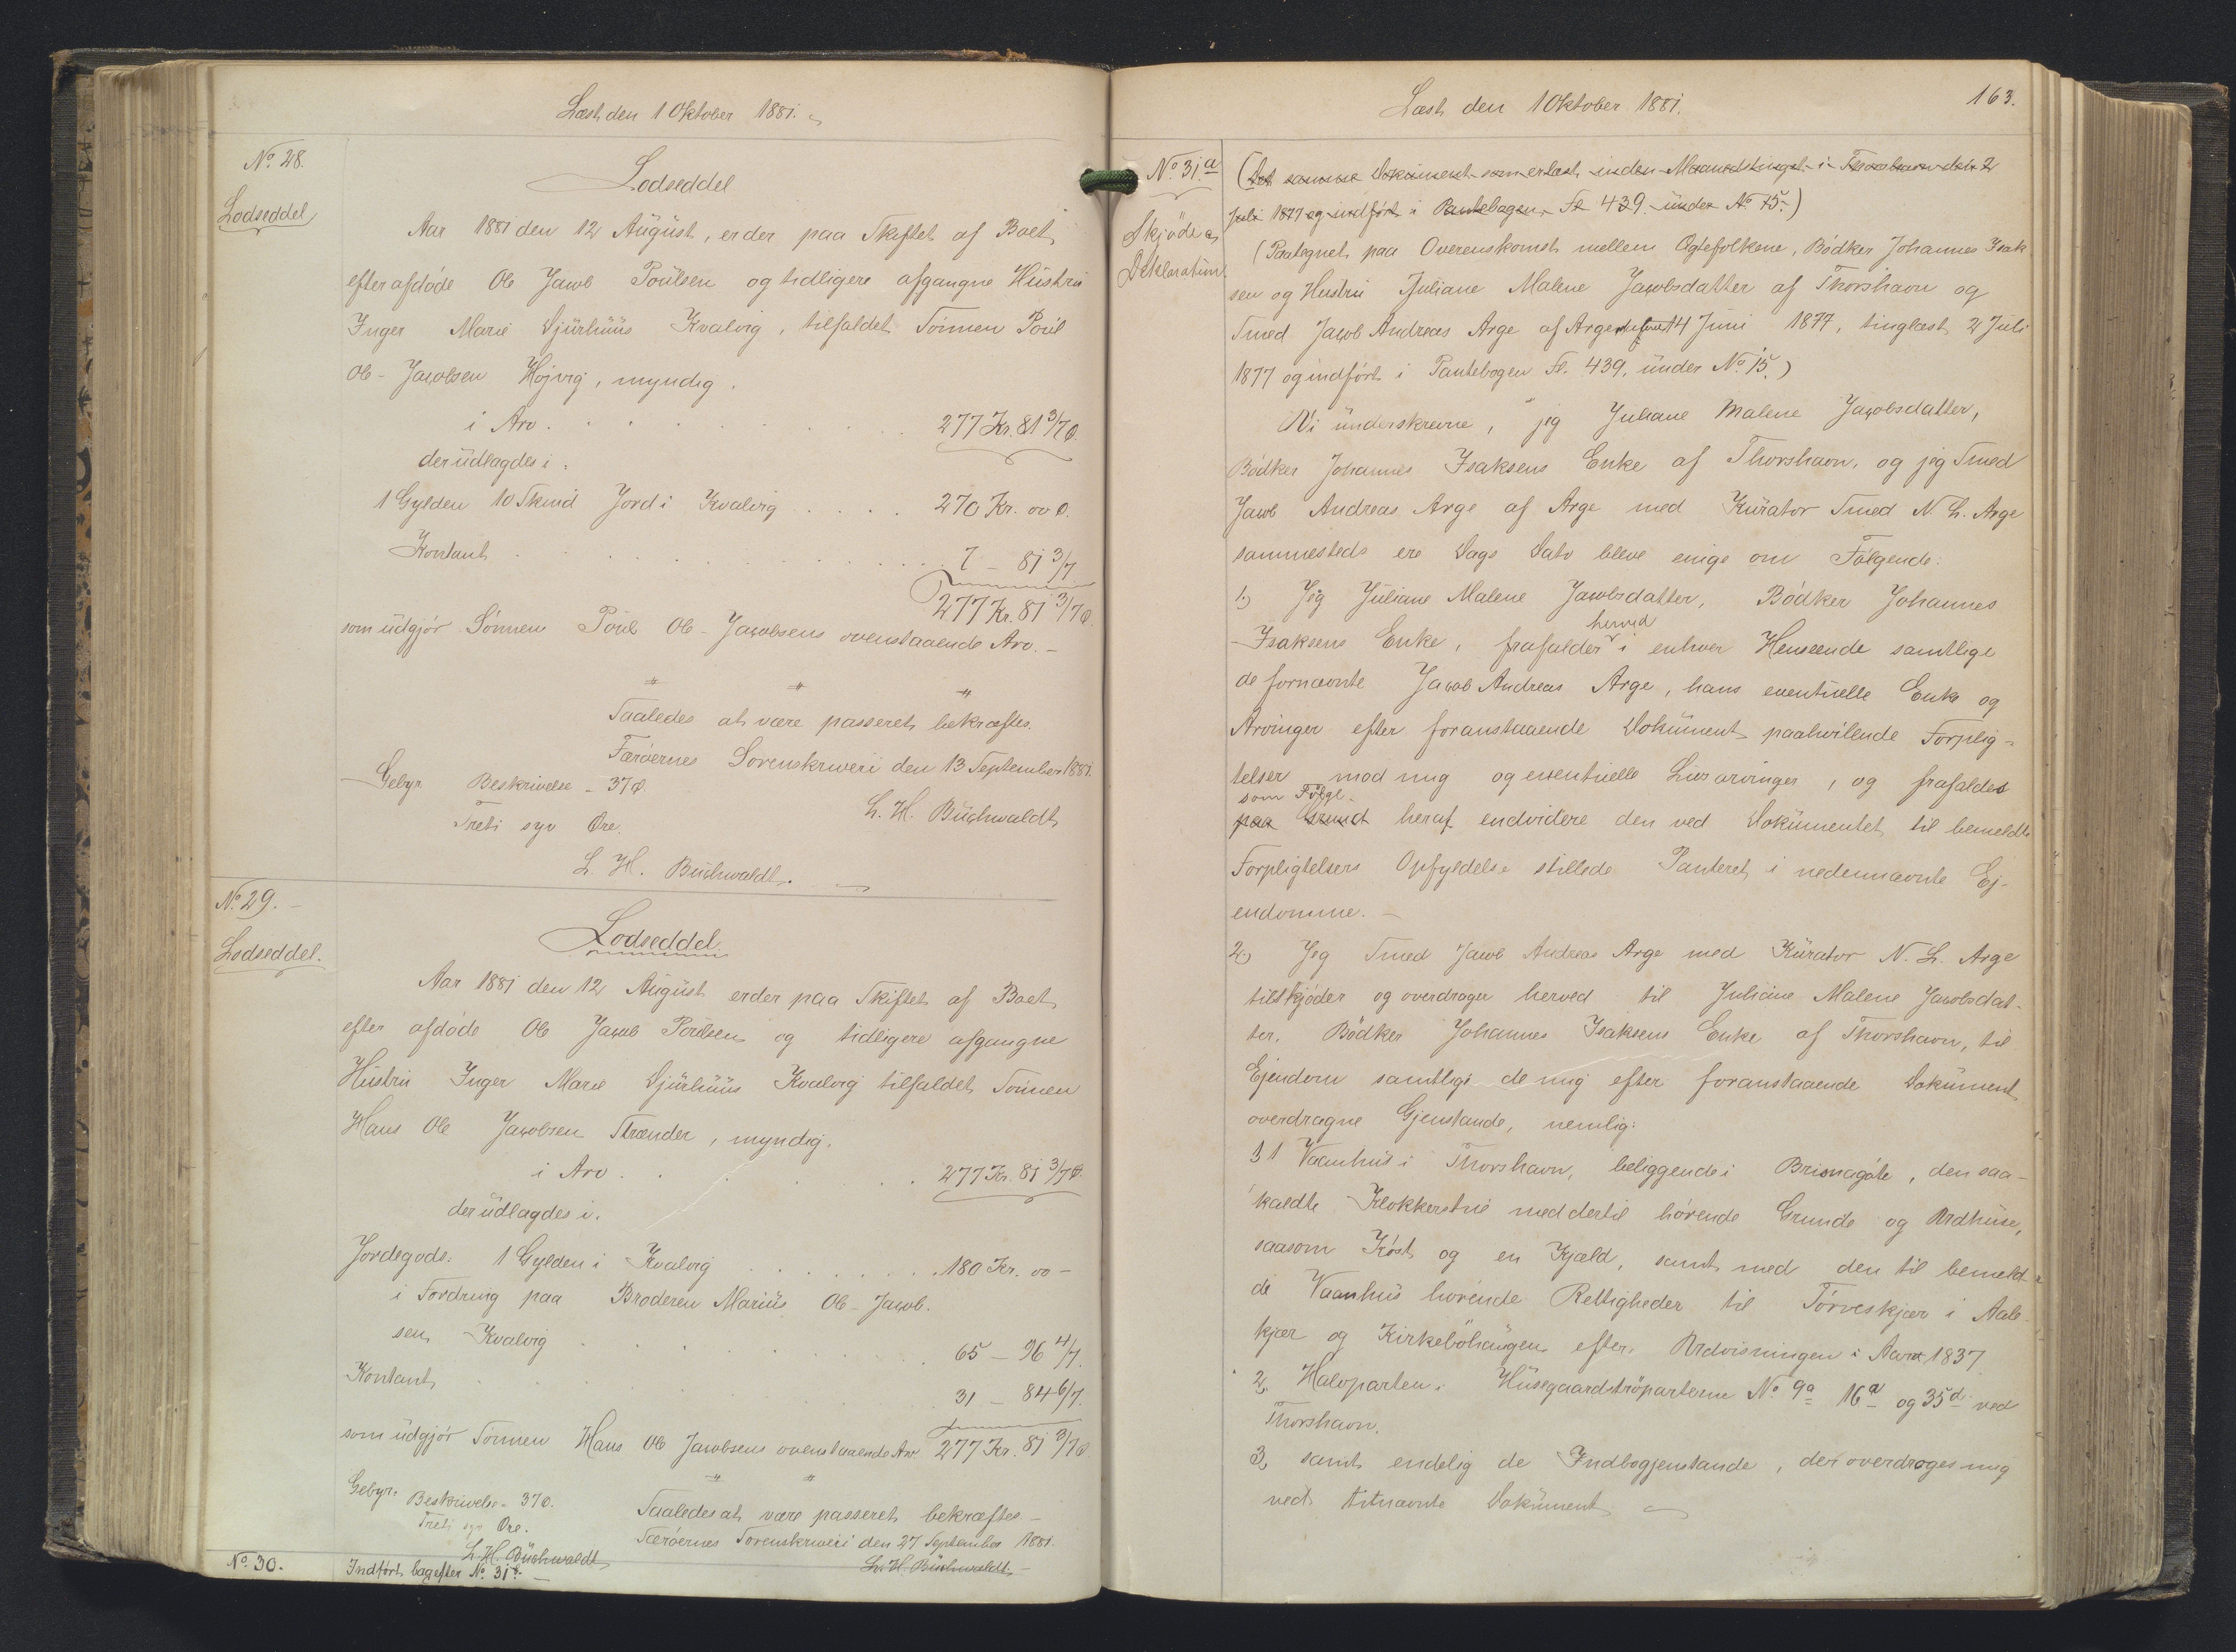 Læst den 1 Oktober 1881.
No. 28.
Lodseddel
Lodseddel
Aar 1881 den 12 August, er der paa Skiftet af Boet
efter afdøde Ole Jacob Poulsen og tidligere afgangne Hustru
Inger Marie Djurhuus Kvalvig, tilfaldet Sønnen Poul
Ole-Jacobsen Højvig, myndig.
i Arv . . . . . . . . . 277 Kr. 81 3/7 Ø.
der udlagdes i:
1 Gylden 10 Skind Jord i Kvalvig . . . . 270 Kr. 00 Ø.
Kontant . . . . . . . . . 7 - 81 3/7
277 Kr. 81 3/7 Ø.
som udgjør Sønnen Poul Ole-Jacobsens ovenstaaende Arv. -
Saaledes at være passeret bekræftes.
Færøernes Sorenskriveri den 13 September 1881.
Gebyr Beskrivelse - 37 Ø.
L. H. Buchwaldt
Treti syv Øre.
L. H. Buchwaldt.
No. 29.
Lodseddel.
Lodseddel.
Aar 1881 den 12 August er der paa Skiftet af Boet
efter afdøde Ole Jacob Poulsen og tidligere afgangne
Hustru Inger Marie Djurhuus Kvalvig tilfaldet Sønnen
Hans Ole Jacobsen Strænder, myndig.
i Arv . . . . . . 277 Kr. 81 3/7 Ø.
der udlagdes i.
Jordegods: 1 Gylden i Kvalvig . . . . . . . 180 Kr. 00 -
i Fordring paa Broderen Marius Ole-Jacob-
sen Kvalvig . . . . . . . . 65 - 96 4/7.
Kontant . . . . . . . . 31 - 84 6/7.
som udgjør Sønnen Hans Ole Jacobsens ovenstaaende Arv 277 Kr. 81 3/7 Ø
Gebyr. Beskrivelse - 37 Ø.
Saaledes at være passeret bekræftes. -
Treti syv Øre.
Færøernes Sorenskriveri den 27 September 1881.
L. H. Buchwaldt
L. H. Buchwaldt. -
No. 30.
Indført bagefter No. 31 a. -
Læst den 1 Oktober 1881.
163.
No. 31.a
Skjøde &
Deklaration
(Det samme Dokument som er læst inden Maanedstinget i Thorshavn den 2
Juli 1877 og indført i Pantebogen Fl. 439. under No. 15.)
(Paategnet paa Overenskomst mellem Ægtefolkene, Bødker Johannes Isak-
sen og Hustru Juliane Malene Jacobsdatter af Thorshavn og
Smed Jacob Andreas Arge af Arge 14 Juni 1877, tinglæst 2 Juli
1877 og indført i Pantebogen Fl. 439. under No. 15.)
Vi underskrevne, jeg Juliane Malene Jacobsdatter,
Bødker Johannes Isaksens Enke af Thorshavn, og jeg Smed
Jacob Andreas Arge af Arge med Kurator Smed N. L. Arge
sammesteds ere Dags Dato bleve enige om Følgende:
1.) Jeg Juliane Malene Jacobsdatter, Bødker Johannes
herved
Isaksens Enke, frafalder i enhver Henseende samtlige
de fornævnte Jacob Andreas Arge, hans eventuelle Enke og
Arvinger efter foranstaaende Dokument paahvilende Forplig-
telser mod mig og eventuelle Livsarvinger, og frafaldes
som Følge
paa Grund heraf endvidere den ved Dokumentet til bemeldte
Forpligtelsers Opfyldelse stillede Panteret i nedennævnte Ej-
endomme. -
2.) Jeg Smed Jacob Andreas Arge med Kurator N. L. Arge
tilskjøder og overdrager herved til Juliane Malene Jacobsdat-
ter, Bødker Johannes Isaksens Enke af Thorshavn, til
Ejendom samtlige de mig efter foranstaaende Dokument
overdragne Gjenstande, nemlig:
1 Vaanhus i Thorshavn, beliggende i Brisnagøte, den saa-
kaldte Klokkerstue med dertil hørende Grunde og Udhuse,
saasom Køst og en Kjæld, samt med den til bemeld-
de Vaanhus hørende Rettigheder til Tørveskjær i Aale-
kjær og Kirkebøhaugen efter Udvisningen i Aaret 1837
2, Halvparten i Husegaardstrøparterne No. 9a 16a og 35d ved
Thorshavn.
3, samt endelig de Indbogjenstande, der overdroges mig
ved nævnte Dokument